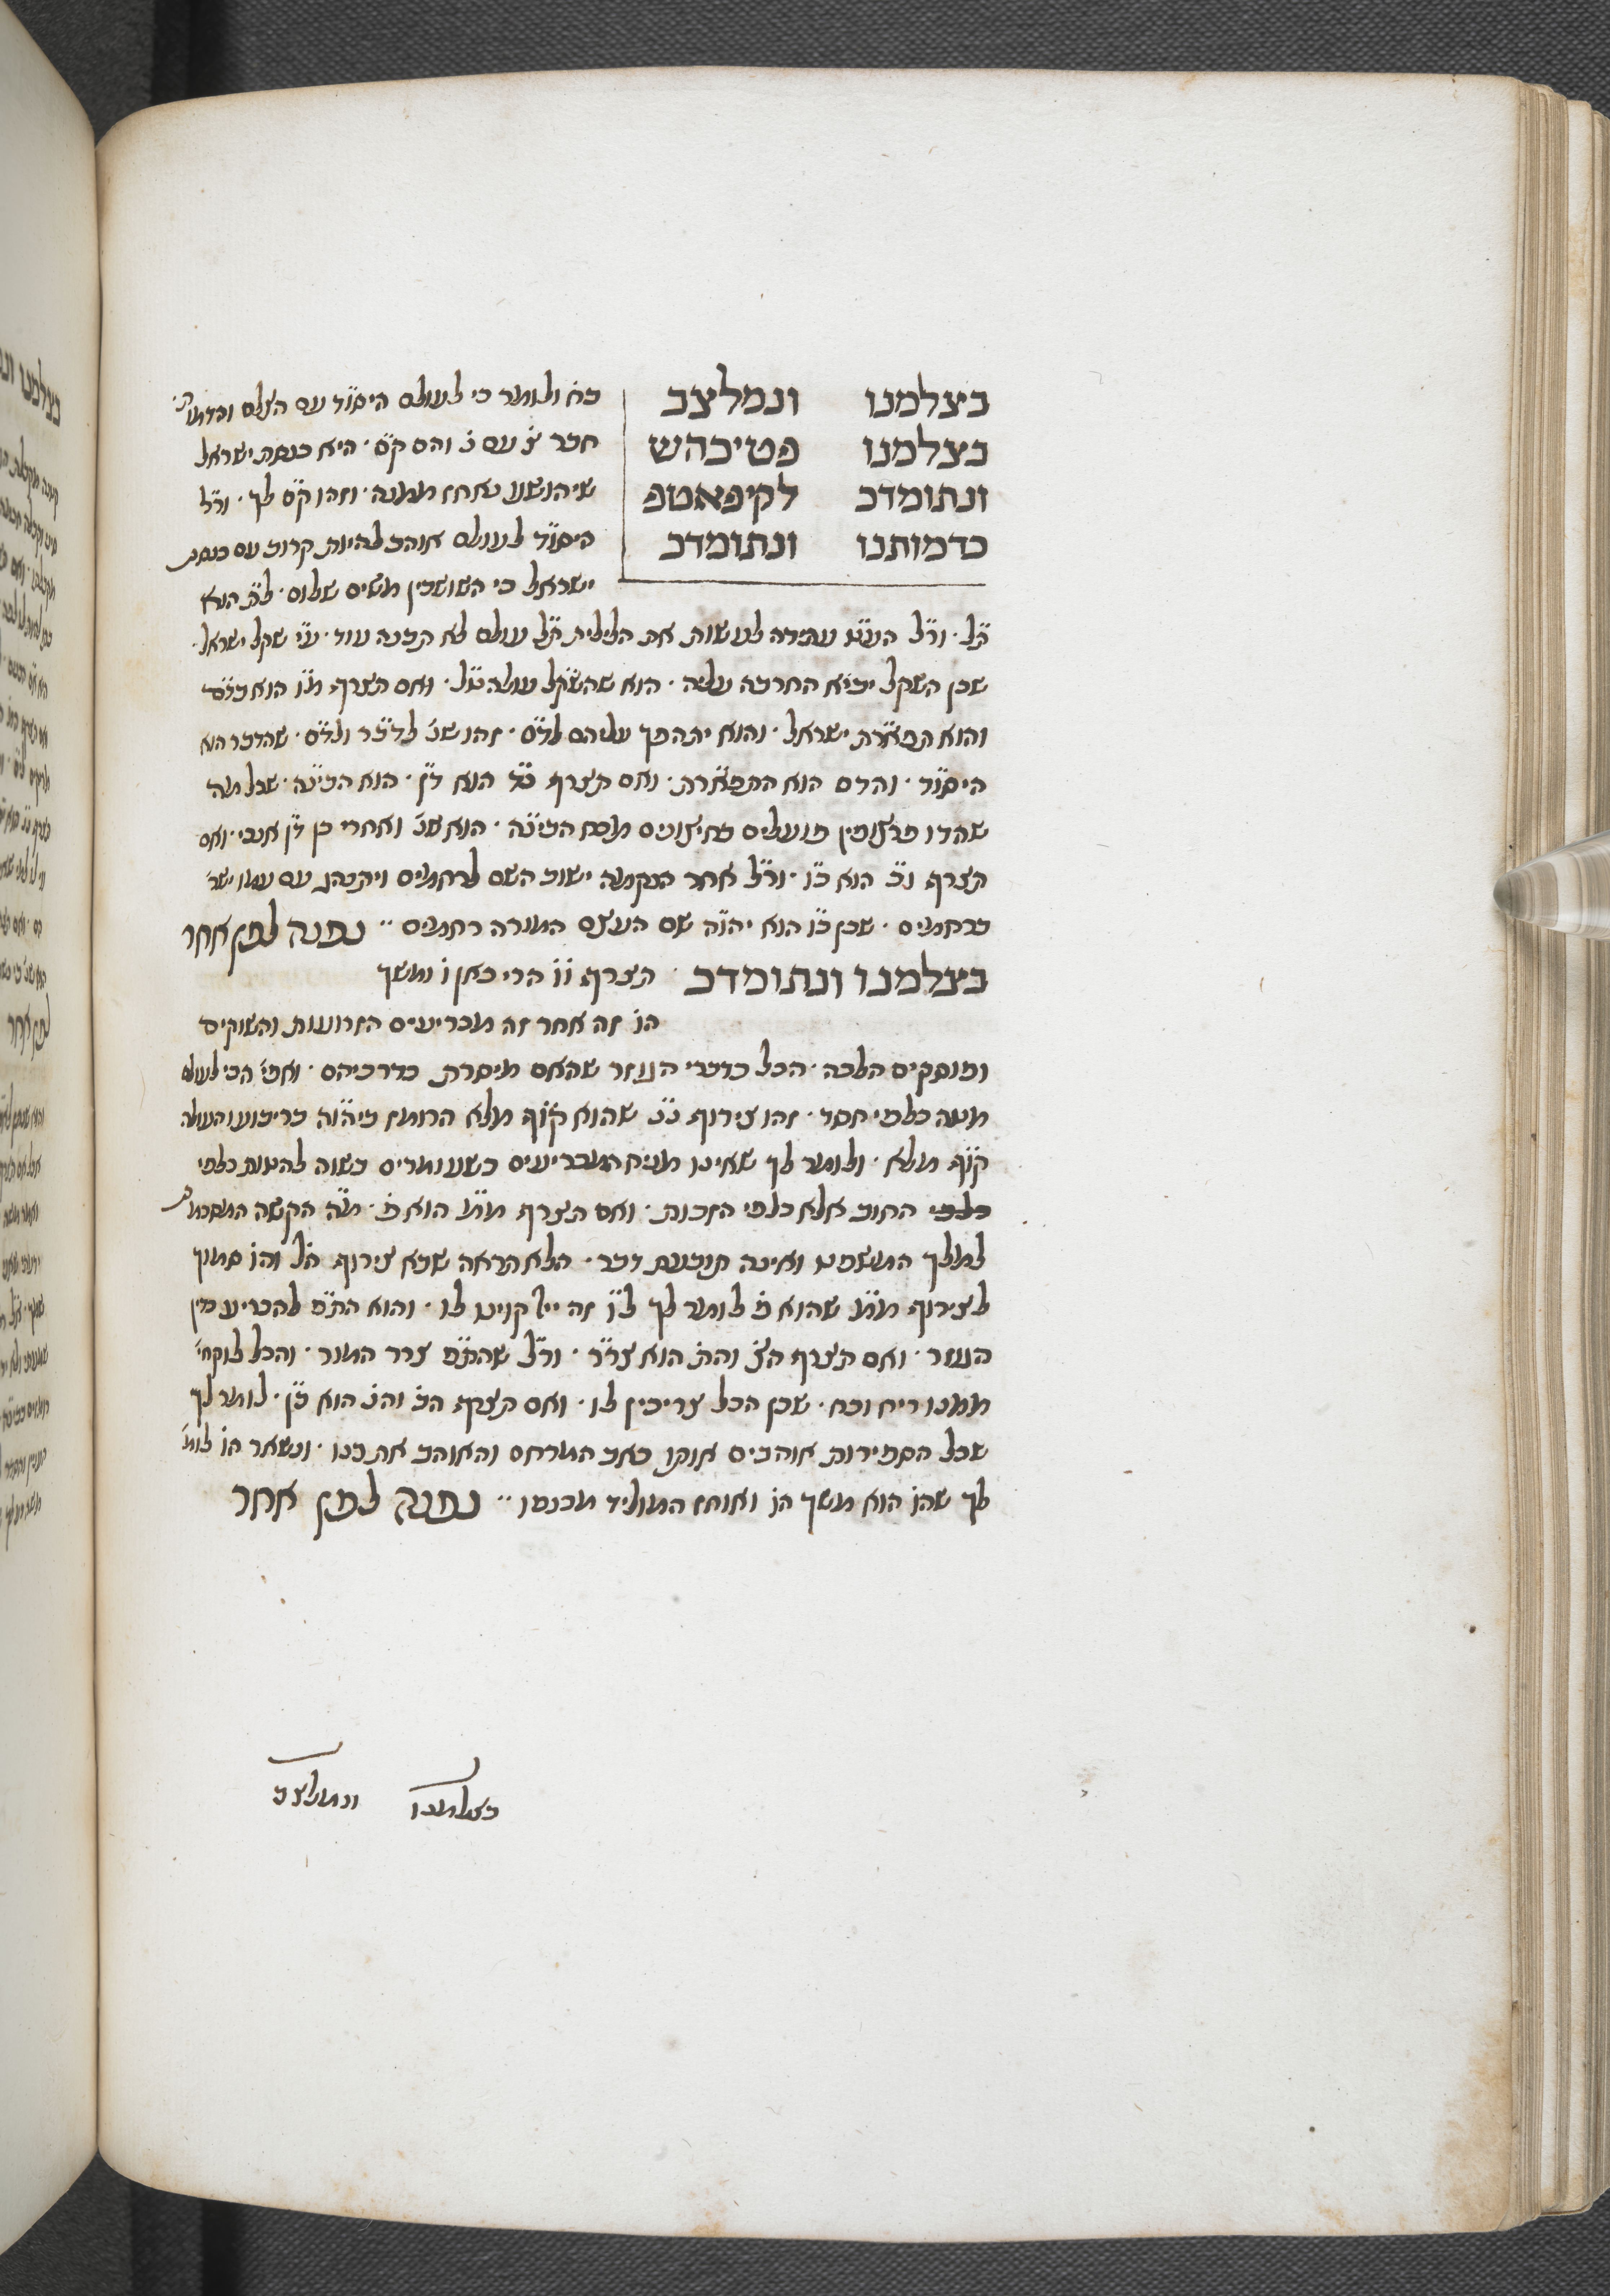 בצלמנו ונמלצב
בצלמנו פטיכהש
ונתומדכ לקיפאטפ
כדמותנו ונתומדכ
ולומר כי לעולם היסוד עם הצלם
חבר צ עם נ והם קם. היא כנסת ישראל
שיהושע אחז ממנה. וזהו קם לך. ור״ל
היסוד לעולם אוהב להיות קרוב עם כנסת
ישראל כי השושבין משים שלום. הוא
תל. ור״ל עתידה לעשות את תל עולם לא תבנה עוד. ע״י שקל ישראל.
שכן השקל יביא החרבה עליה. הוא שהשקל עולה תל. ואם תצרף מ״ו הוא
והוא תפארת ישראל. והוא יתהפך עליהם לדם. זהו שנ׳ לדבר ולדם. שהדבר הוא
היסוד. והדם הוא התפארת. ואם תצרף הוא דן. הוא הבינה. שכל מה
פועלים מכח הבינה. הוא שנ׳ ואחרי כן דן אנכי. ואם
תצרף הוא כ״ו. ור״ל אחר הנקמה ישוב השם לרחמים ויתנהג עם עמו ישר׳
ברחמים. שכן כ״ו הוא יהוה שם העצם המורה רחמים. נפנה לפן אחר
בצלמנו ונתומדכ תצרף וו הרי כאן ו נמשך
הו׳ זה אחר זה מכריעים הזרועות והשוקים
ופוסקים הלכה. הכל כדברי הנער שהאם מיסרת בדרכיהם. ואפי׳ הכי לעולם
מטה כלפי חסד. זהו צירוף שהוא קוף מלא הרומז ביהוה בריבוע והעולה
קוף מלא. ולומר לך שאינו המכריעים כשעומדים בשוה להטות כלפי
כלפי החוב אלא כלפי הזכות. ואם תצרף הוא מ׳. הקשה
למלך המשפט ואינה תובעת דבר. הלא תראה שבא צירוף
לצירוף שהוא מ׳ לומר לך ל״ו זה יי׳ קוינו לו. והוא להכריע בין
הנער. ואם תצרף הצ׳ והת׳ הוא צרר. ור״ל צרר המור. והכל לוקח׳
ממנו ריח וכח. שכן הכל צריכין לו. ואם תצרף הב׳ והנ׳ הוא בן. לומר לך
שכל הספירות אוהבים אותו כאב המרחם והאוהב את בנו. ונשאר הו׳ לומ׳
לך שהו׳ הוא נמשך הו׳ ואוחז המוליד מכנסו. נפנה לפן אחר
בצלמנו ונמלצב